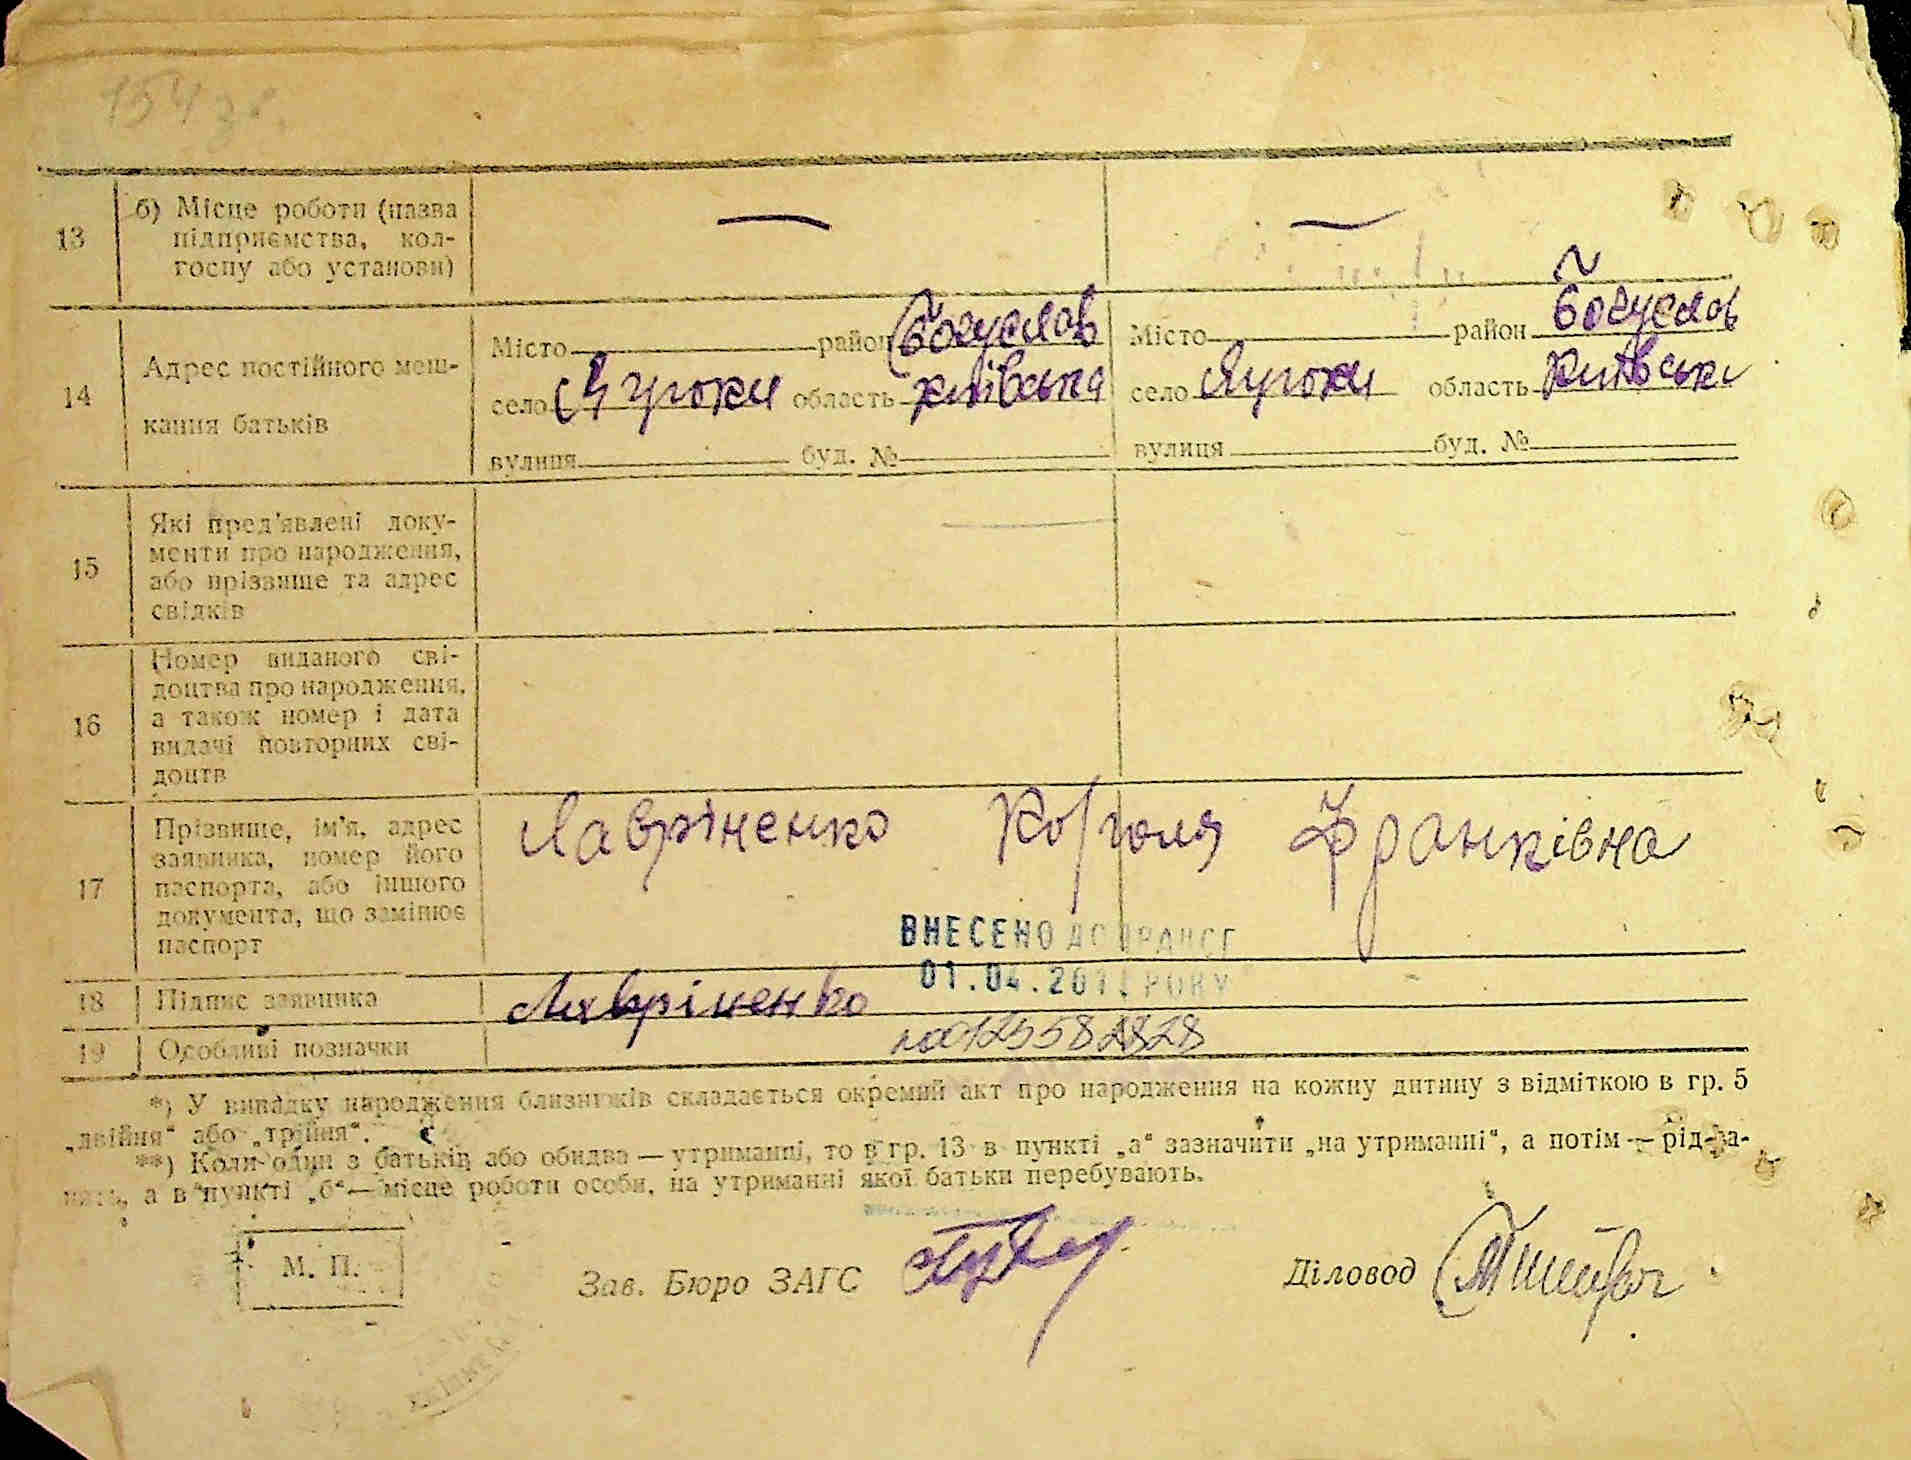 154 зв.
13
б) Місце роботи (назва
підприємства, кол-
госпу або установи)
—
—
14
Адрес постійного меш-
кання батьків
Місто район Богуслав
село Яцюки область Київська
вулиця буд. №
Місто район Богуслав
село Яцюки область Київськ
вулиця буд. №
15
Які пред'явлені доку-
менти про народження,
або прізвище та адрес
свідків
16
Номер виданого сві-
доцтва про народження,
а також номер і дата
видачі повторних сві-
доцтв
17
Прізвище, ім'я, адрес
заявника, номер його
паспорта, або іншого
документа, що замінює
паспорт
Лавріненко Франківна
ВНЕСЕНО ДО ДРАЦСГ
01.04. РОКУ
18
Підпис заявника
Лавріненко
19
Особливі позначки
*) У випадку народження близнюків складається окремий акт про народження на кожну дитину з відміткою в гр. 5
„двійня“ або „трійня“.
**) Коли один з батьків або обидва — утриманці, то в гр. 13 в пункті „а“ зазначити „на утриманні“, а потім — рід за-
нять, а в пункті „б“ — місце роботи особи, на утриманні якої батьки перебувають.
М. П.
Зав. Бюро ЗАГС
Діловод